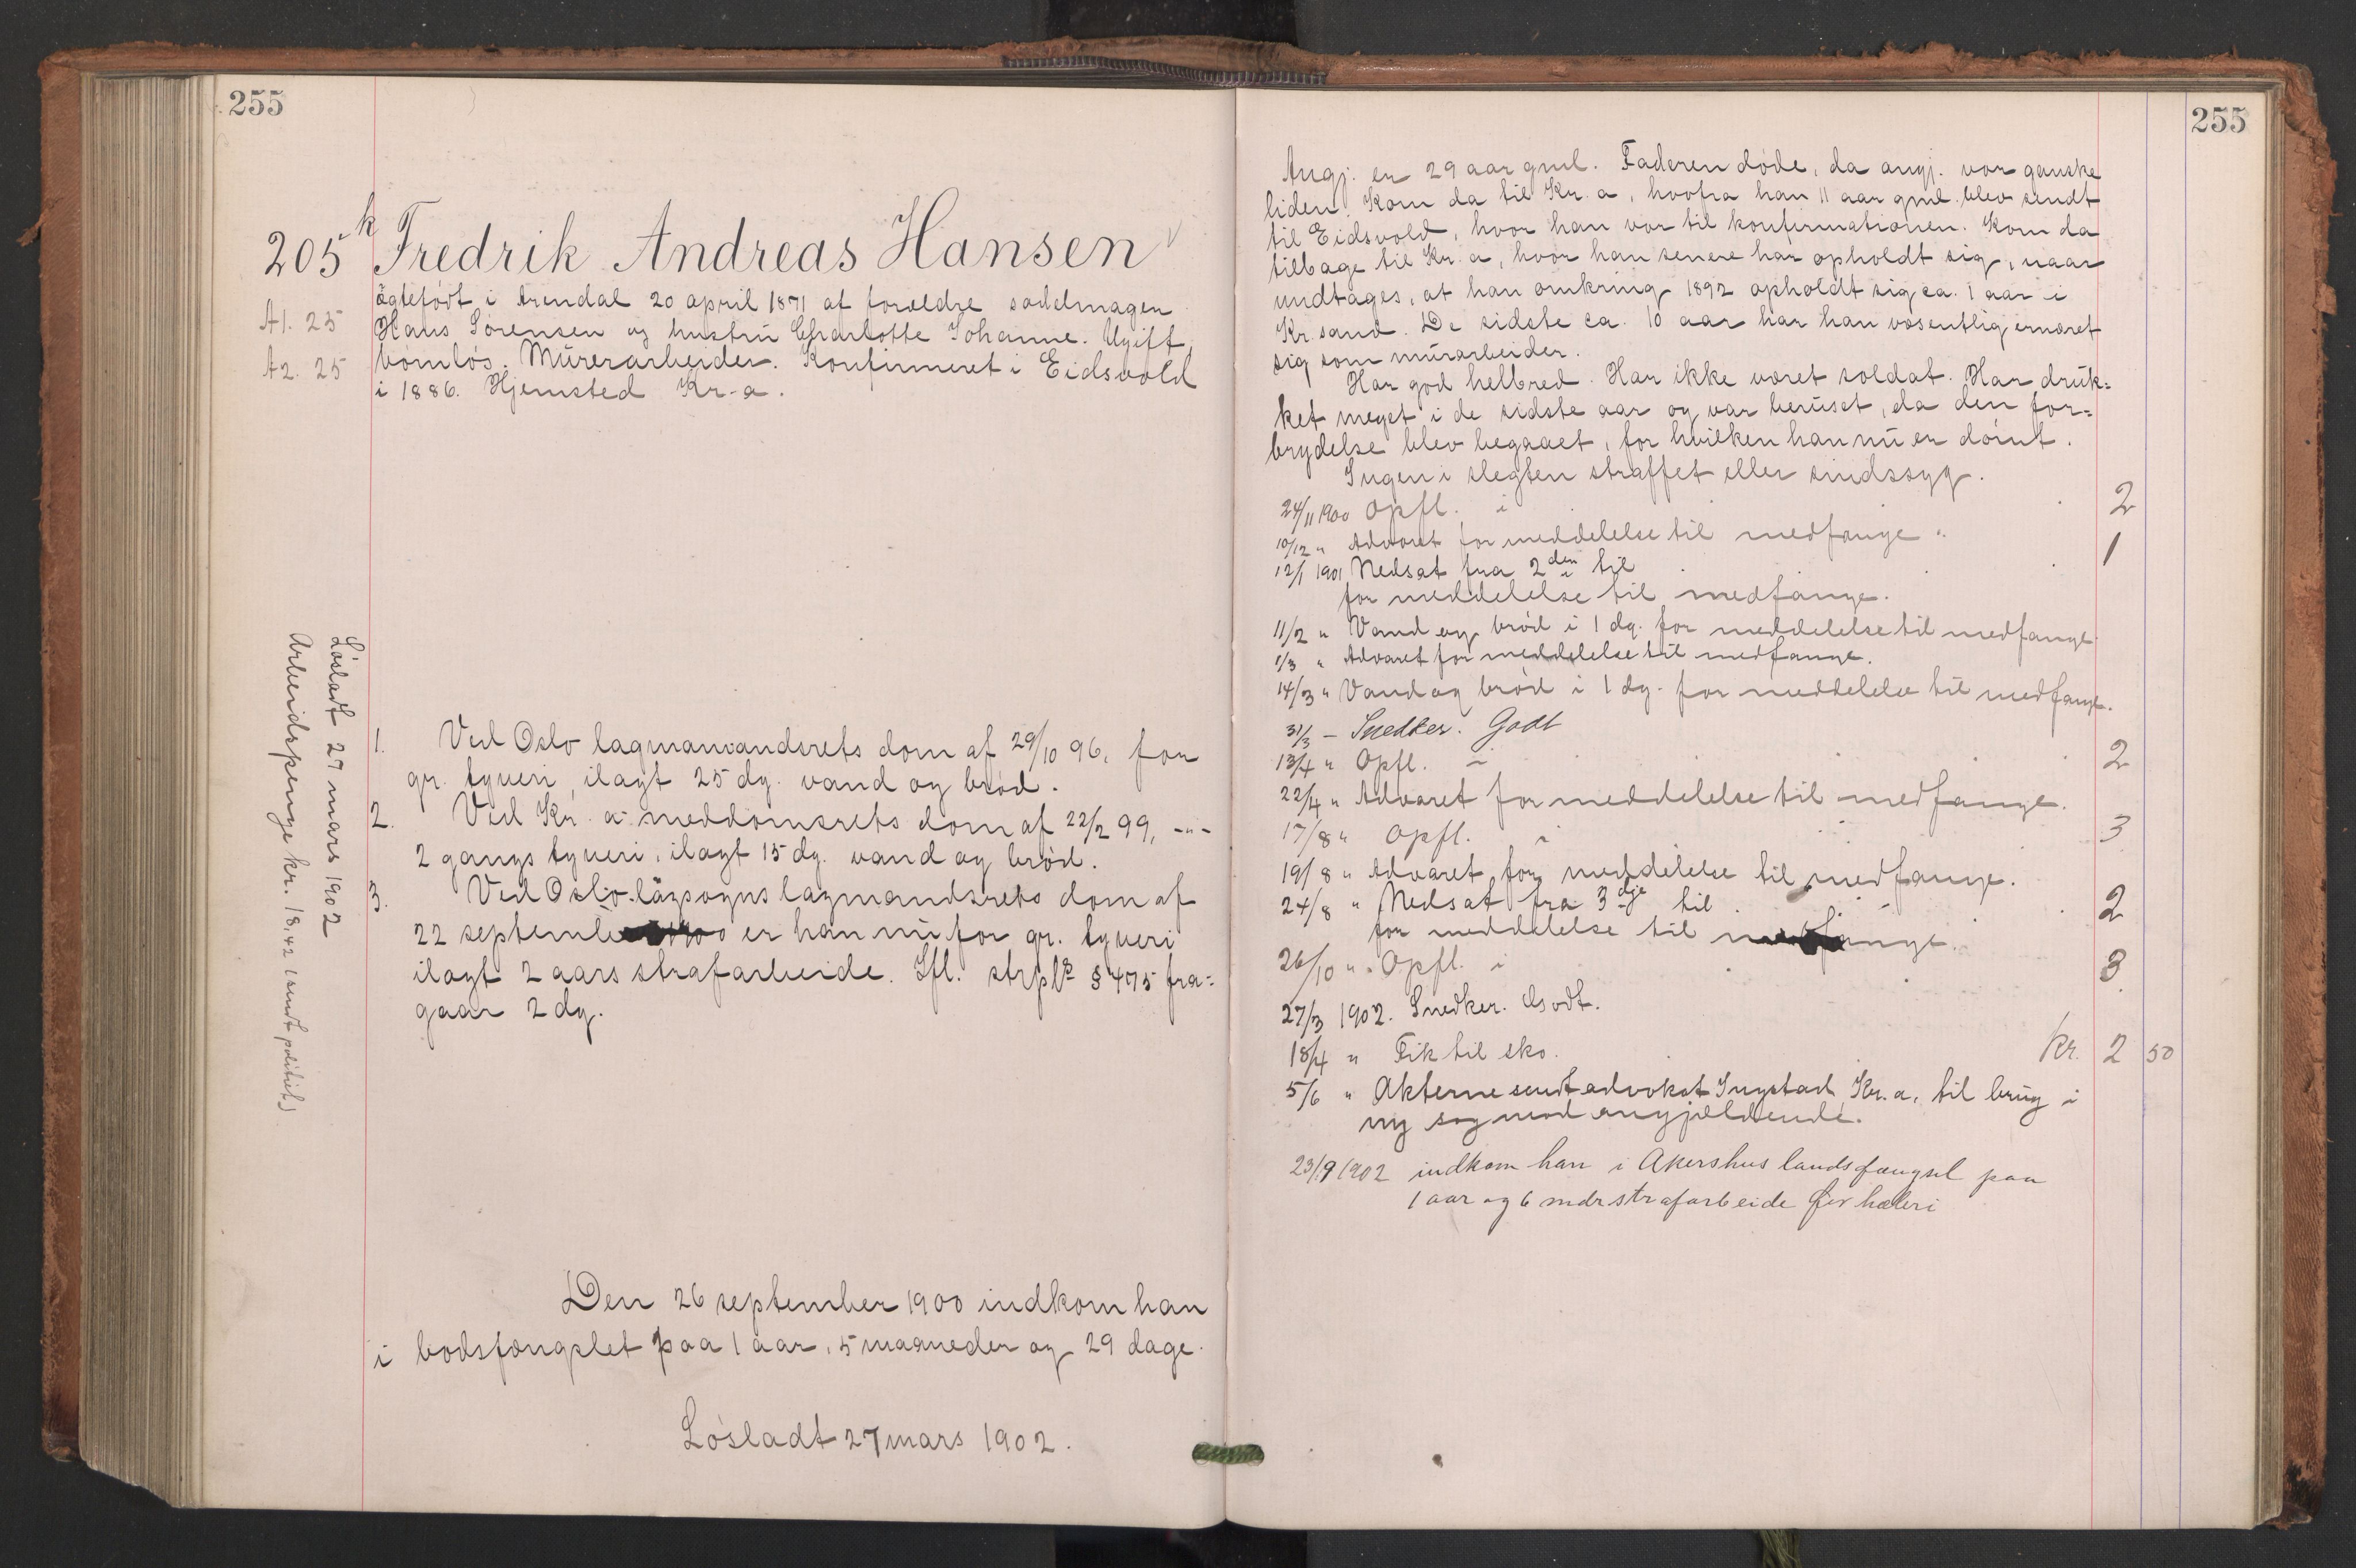 255
205 k Fredrik Andreas Hansen
A1. 25
A2. 25
ögtefödt i Arendal 20 april 1871 af forældre sadelmager
Hans Sörensen og hustru Charlotte Johanne. Ugift,
barnlös. Mürerarbeider. Konfirmeret i Eidsvold
i 1886. Hjemsted Kr-a.
Lösladt 27 mars 1902
Arbeidspenge kr. 18,42 (sendt politiet)
1. Ved Oslo lagmandsrets dom af 29/10 96, for
gr. tyveri, ilagt 25 dg. vand og bröd.
2. Ved Kr. a meddomsrets dom af 22/2 99, -"-
2 gangs tyveri, ilagt 15 dg. vand og bröd.
3. Ved Oslo lagsogns lagmandsrets dom af
22 september 1900 er han nü for gr. tyveri
ilagt 2 aars strafarbeide. Ifl. strpl. § 475 fra-
gaar 2 dg.
Den 26 september 1900 indkom han
i bodsfængslet paa 1 aar, 5 maaneder og 29 dage.
Lösladt 27 mars 1902.
255
Angj. er 29 aar gml. Faderen döde, da angj. var ganske
liden. Kom da til Kr. a, hvofra han 11 aar gml. blev sendt
til Eidsvold, hvor han var til konfirmationen. Kom da
tilbage til Kr. a, hvor han senere har opholdt sig, naar
undtages, at han omkring 1892 opholdt sig ca. 1 aar i
Kr.sand. De sidste ca. 10 aar har han væsentlig ernæret
sig som mürarbeider.
Har god helbred. Har ikke været soldat. Har drük=
ket meget i de sidste aar og var berüset, da den for=
brydelse blev begaaet, for hvilken han nü er dömt.
Ingen i slegten straffet eller sindssyg.
24/11 1900 Opfl. i 2
10/12 " Advaret for meddelelse til medfange.
12/1 1901 Nedsat fra 2den til 1
for meddelelse til medfange.
11/2 " Vand og bröd i 1 dg. for meddelelse til medfange
1/3 " Advaret for meddelelse til medfange.
14/3 " Vand og bröd i 1 dg. for meddelelse til medfange.
31/3 - Snedker. Godt
13/4 " Opfl. i 2
22/4 " Advaret for meddelelse til medfange.
17/8 " Opfl. i 3
19/8 " Advaret for meddelelse til medfange.
24/8 " Nedsat fra 3dje til 2
for meddelelse til medfange.
26/10 " Opfl. i 3
27/3 1902. Snedker. Godt.
18/4 " Fik til sko. Kr. 2 50
5/6 " Akterne sendt advokat Ingstad, Kr. a. til brüg i
ny sag mod angjældende.
23/9 1902 indkom han i Akershus landsfængsel paa
1 aar og 6 mdr strafarbeide for hæleri